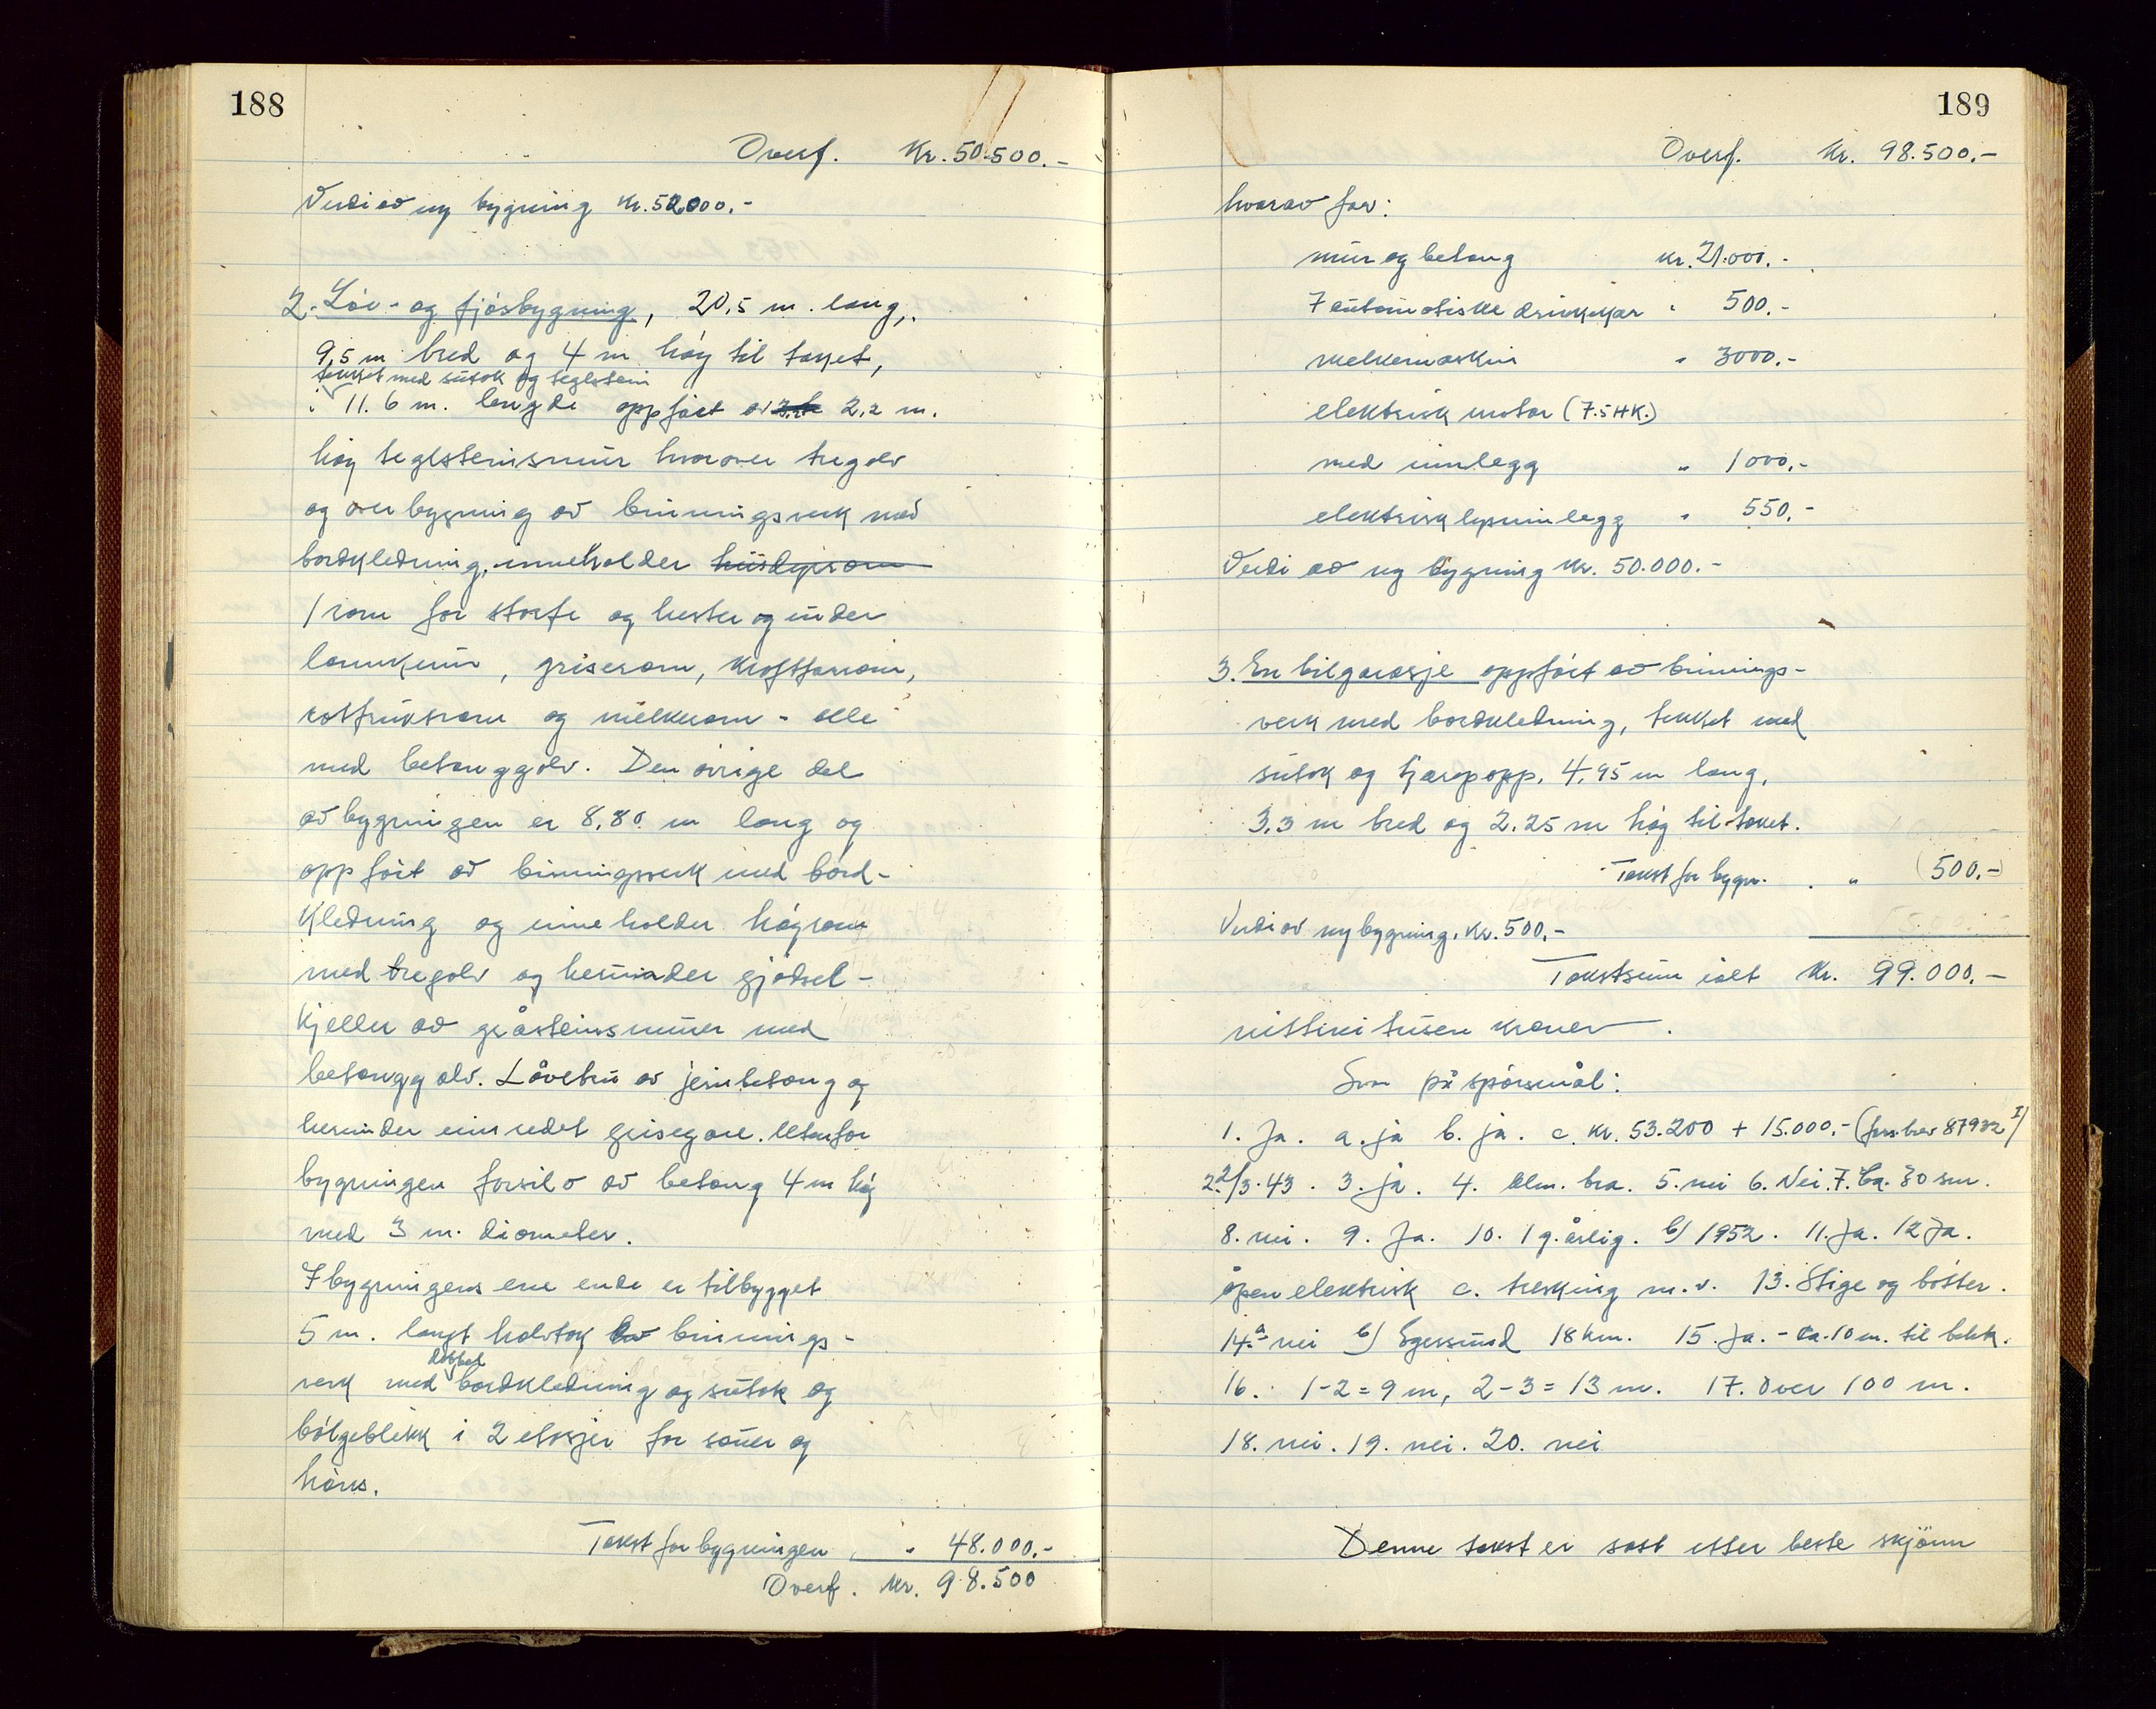 188
Overf. Kr. 50.500.-
Verdi av ny bygning Kr. 52000.-
2. Löe- og fjösbygning, 20,5 m. lang,
9,5 m bred og 4 m höy til taket,
tekket med sutak og teglstein
i 11.6 m. lengde oppfört av 2,2 m.
höy teglsteinsmur hvorover tregolv
og overbygning av binningsverk med
bordkledning, inneholder husdyrrom
1 rom for storfe og hester og under
lannkum, griserom, kraftforrom,
rotfruktrom og melkerom - alle
med betonggolv. Den övrige del
av bygningen er 8,80 m lang og
oppfört av binningsverk med bord-
kledning og inneholder höyrom
med tregolv og herunder gjödsel-
kjeller av gråsteinsmurer med
betonggolv. Låvebru av jernbetong og
herunder innredet grisegare. Utenfor
bygningen forsilo av betong 4 m höy
med 3 m. diameter.
I bygningens ene ende er tilbygget
5 m. langt halvtak av binnings-
dobbel
verk med bordkledning og sutak og
bölgeblekk i 2 etasjer for sauer og
höns.
Takst for bygningen " 48.000.-
Overf. Kr. 98.500
189
Overf. Kr. 98.500.-
hvorav for:
mur og betong Kr. 21.000.-
7 automatiske drikkekar " 500.-
melkemaskin " 3000.-
elektrisk motor (7.5 HK.)
med innlegg " 1000.-
elektrisk lysinnlegg " 550.-
Verdi av ny bygning Kr. 50.000.-
3. En bilgarasje oppfört av binnings-
verk med bordkledning, tekket med
sutak og tjærepapp, 4,95 m lang,
3,3 m bred og 2.25 m höy til taket.
Takst for bygn. " (500.-)
Verdi av ny bygning. Kr. 500.-
Takstsum ialt Kr. 99.000.-
nittini tusen kroner.
Svar på spörsmål:
1. Ja. a. ja b. ja. c. Kr. 53.200 + 15.000.- (fors.brev 87932 I)
2. 2/3.43. 3. ja. 4. Alm. bra. 5. nei 6. Nei. 7. Ca. 30 sm.
8. nei. 9. Ja. 10. 1 g. årlig. b) 1952. 11. Ja. 12 Ja.
åpen elektrisk c. tresking m.v. 13. Stige og bötter.
14. a nei b) Egersund 18 km. 15. Ja. - ca. 10 m. til bekk.
16. 1-2 = 9 m, 2-3 = 13 m. 17. Over 100 m.
18. nei. 19. nei. 20. nei
Denne takst er satt etter beste skjönn